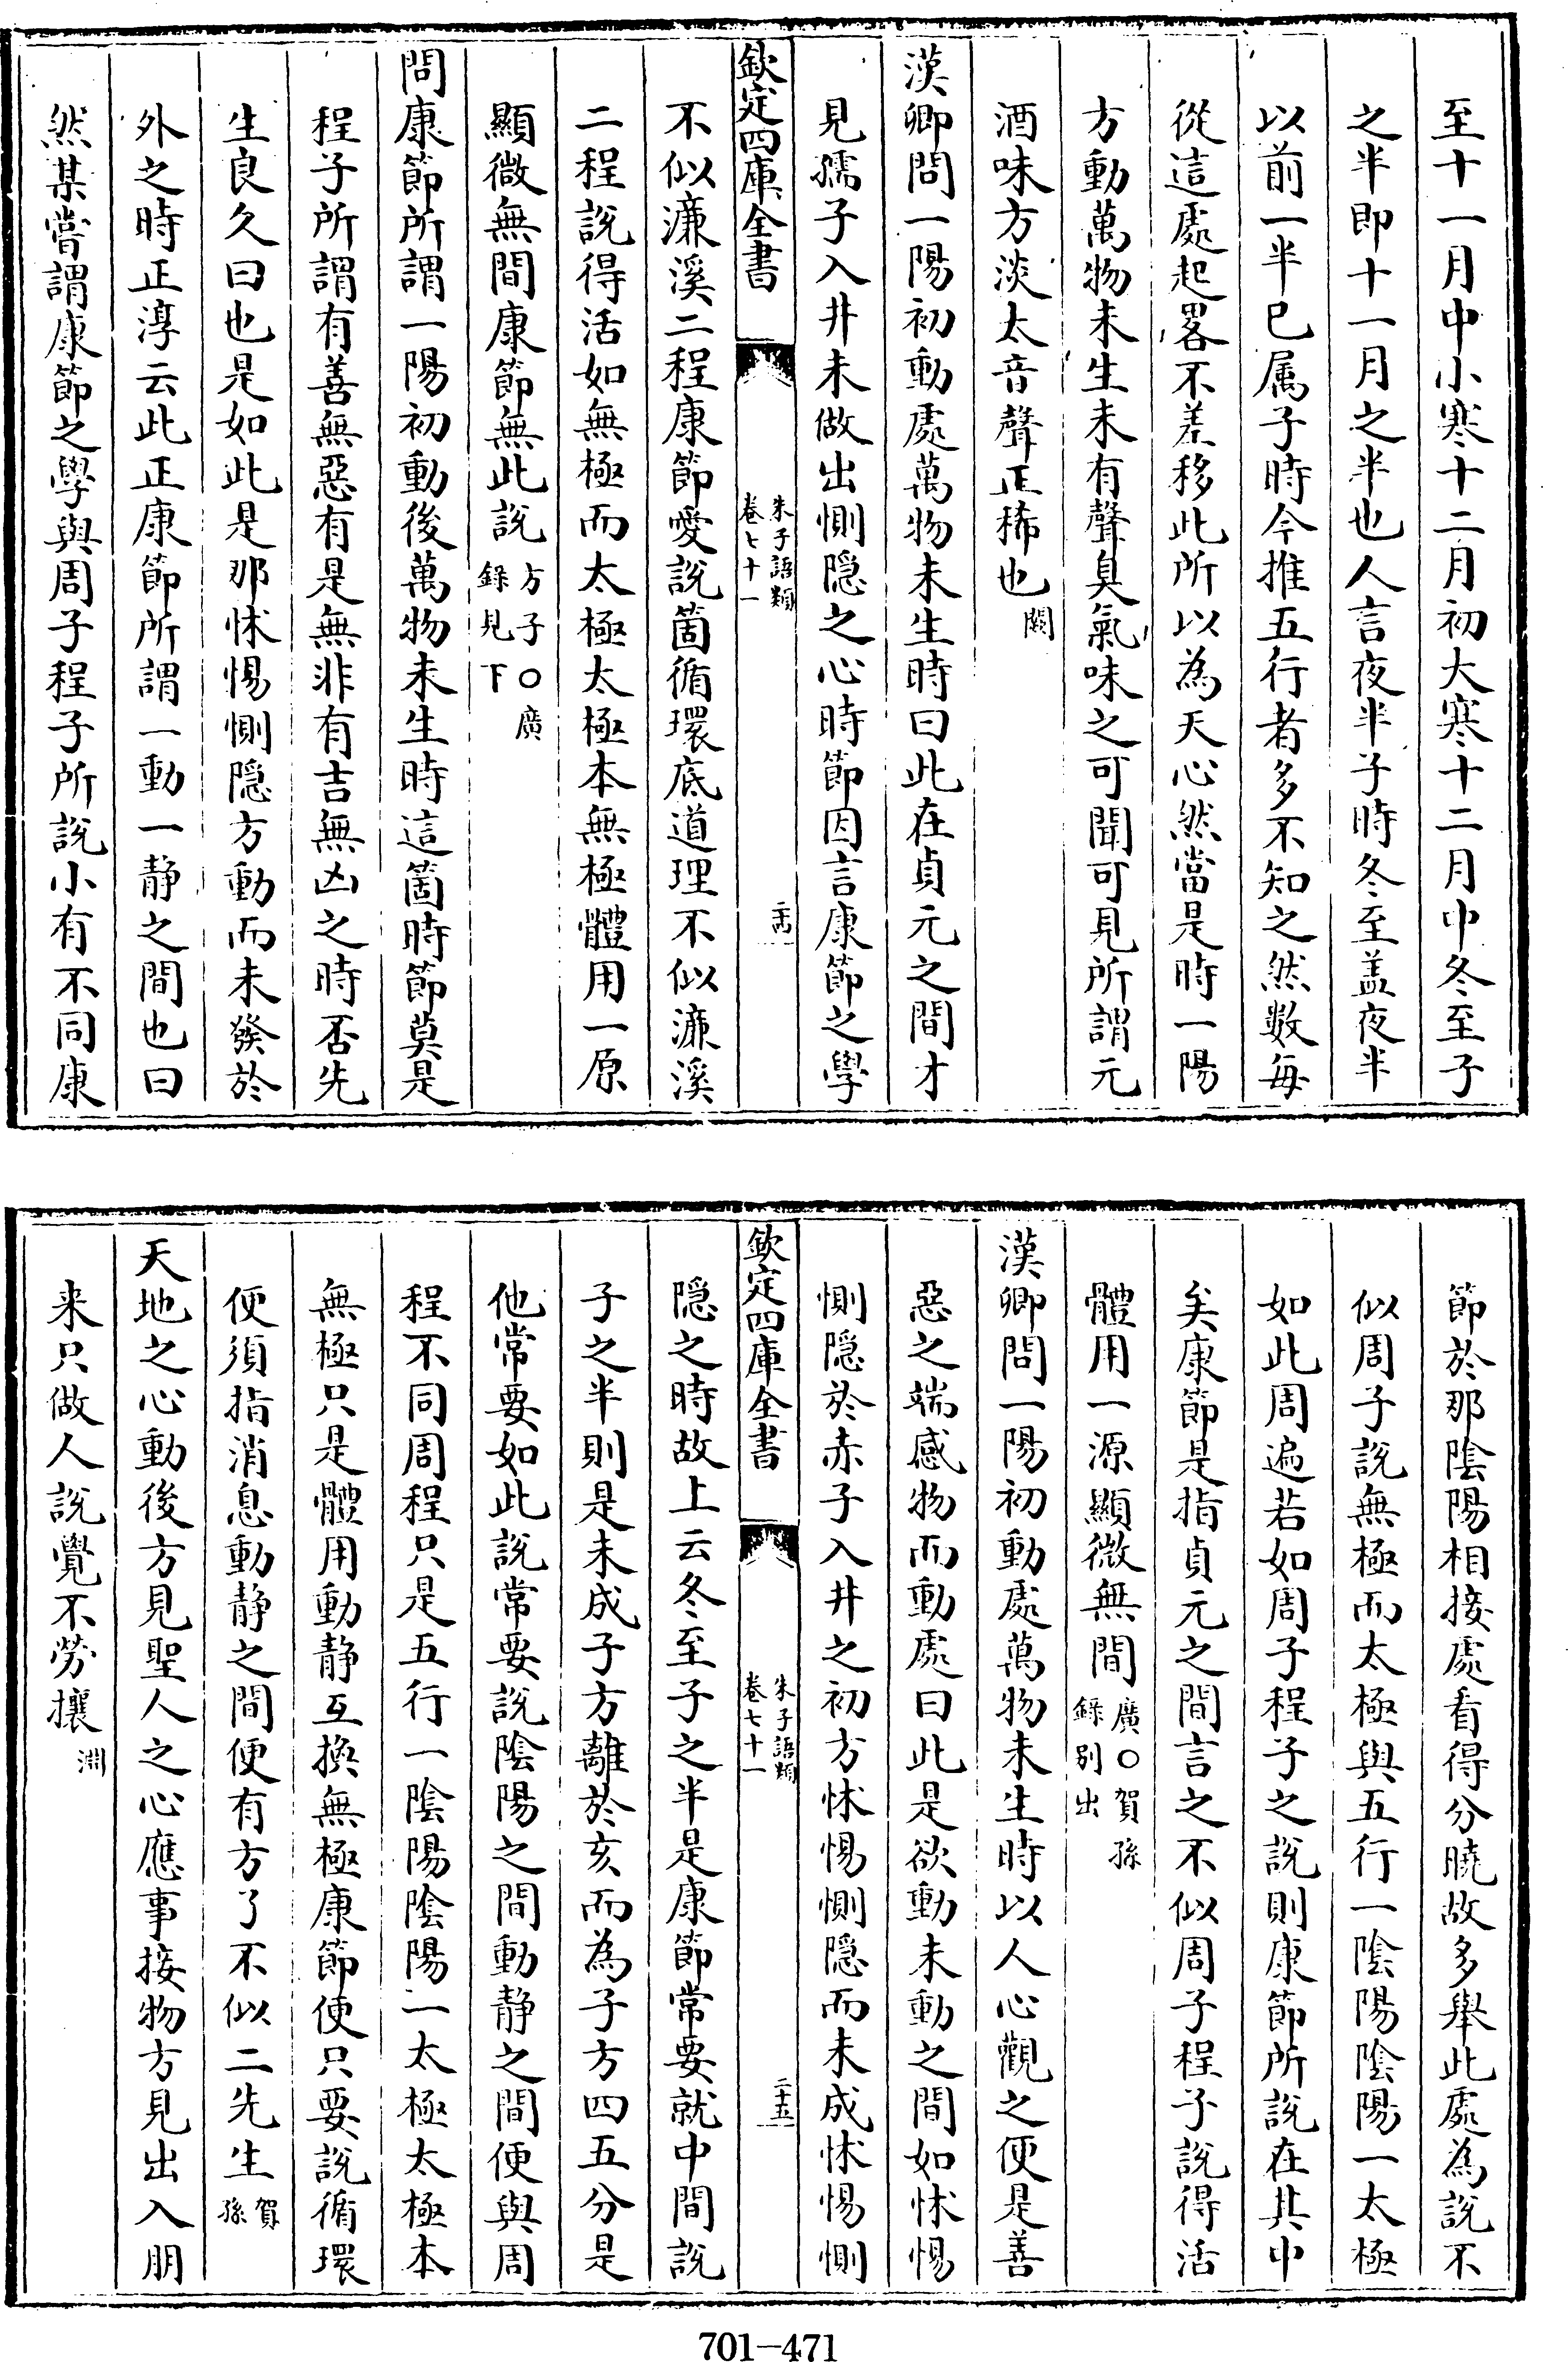 至十一月中小寒十二月初大寒十二月中冬至子
之半即十一月之半也人言夜半子時冬至盖夜半
以前一半已属子時今推五行者多不知之然數每
從這處起畧不差移此所以為天心然當是時一陽
方動萬物未生未有聲臭氣味之可聞可見所謂元
酒味方淡太音聲正稀也閎
漢卿問一陽初動處萬物未生時曰此在貞元之間才
見孺子入井未做出惻隠之心時節因言康節之學
欽定四庫全書
朱子語類
卷七十一
二十四
不似濂溪二程康節愛說箇循環底道理不似濂溪
二程說得活如無極而太極太極本無極體用一原
顯微無間康節無此說方子○廣
錄見下
問康節所謂一陽初動後萬物未生時這箇時節莫是
程子所謂有善無惡有是無非有吉無凶之時否先
生良久曰也是如此是那怵惕惻隠方動而未發於
外之時正淳云此正康節所謂一動一静之間也曰
然某嘗謂康節之學與周子程子所說小有不同康
節於那陰陽相接處看得分曉故多舉此處為說不
似周子說無極而太極與五行一陰陽陰陽一太極
如此周遍若如周子程子之說則康節所說在其中
矣康節是指貞元之間言之不似周子程子說得活
體用一源顯微無間廣○賀孫
錄别出
漢卿問一陽初動處萬物未生時以人心觀之便是善
惡之端感物而動處曰此是欲動未動之間如怵惕
惻隠於赤子入井之初方怵惕惻隠而未成怵惕惻
欽定四庫全書
朱子語類
卷七十一
二十五
隠之時故上云冬至子之半是康節常要就中間說
子之半則是未成子方離於亥而為子方四五分是
他常要如此說常要說陰陽之間動静之間便與周
程不同周程只是五行一陰陽陰陽一太極太極本
無極只是體用動静互換無極康節便只要說循環
便須指消息動静之間便有方了不似二先生賀
孫
天地之心動後方見聖人之心應事接物方見出入朋
来只做人說覺不勞攘淵
701-471